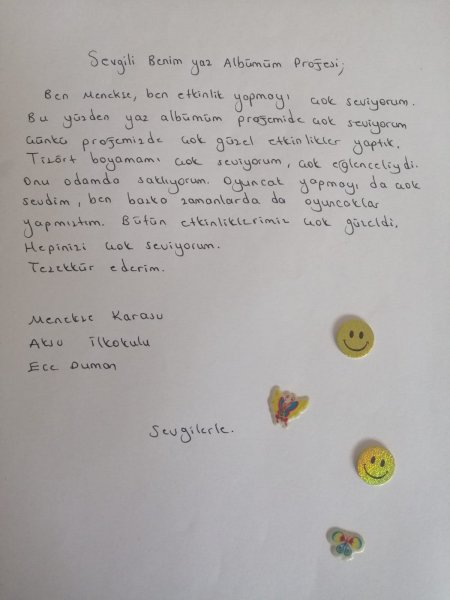 Sevgili Benim yaz Albümüm Projesi;
Ben Menekşe, ben etkinlik yapmayı çok seviyorum.
Bu yüzden yaz albümüm projemide çok seviyorum
Çünkü projemizde çok güzel etkinlikler yaptık.
Tişört boyamamı çok seviyorum, çok eğlenceliydi.
Onu odamda saklıyorum. Oyuncak yapmayı da çok
sevdim, ben başka zamanlarda da oyuncaklar
yapmıştım. Bütün etkinliklerimiz çok güzeldi.
Hepinizi çok seviyorum.
Teşekkür ederim.
Menekşe Karasu
Aksu İlkokulu
Ece Duman
Sevgilerle.